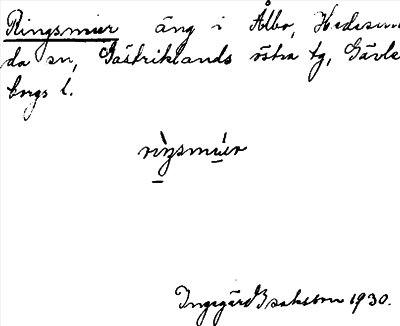 Ringsmier äng i Ålbo, Hedesun
da sn, Gästriklands östra tg, Gävle
borgs l.
Ingegärd Isakson 1930.